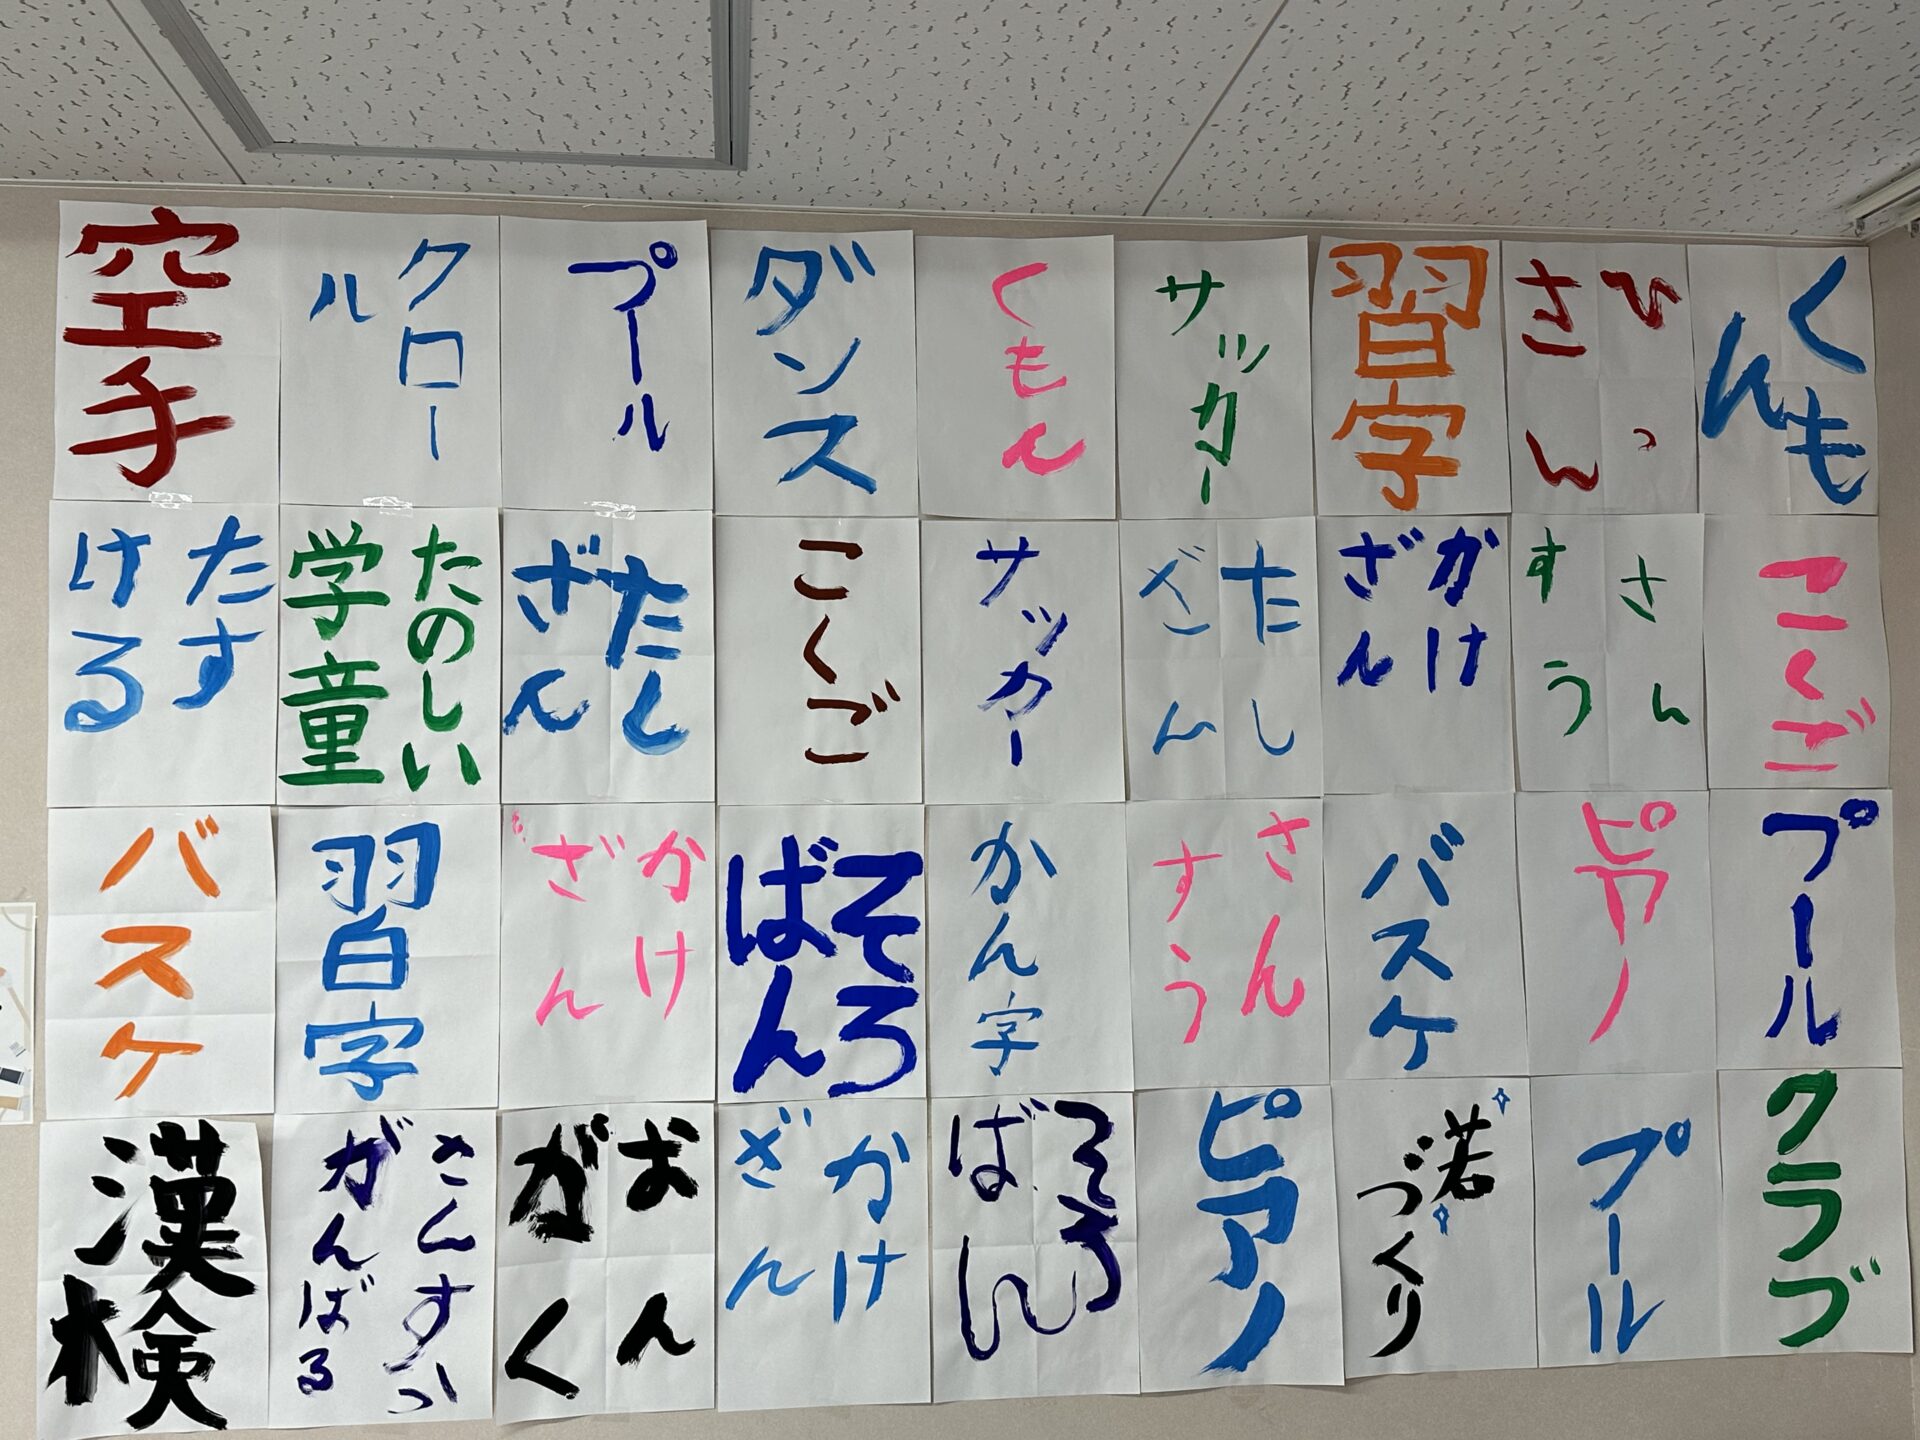 空手
クロー
ル
プール
ダンス
くもん
サッカー
習字
ひっ
さん
くも
ん
たす
ける
たのしい
学童
たし
ざん
こくご
サッカー
たし
ざん
かけ
ざん
さん
すう
こくご
バスケ
習字
かけ
ざん
そろ
ばん
かん字
さん
すう
バスケ
ピアノ
プール
漢検
さんすう
がんばる
おん
がく
かけ
ざん
そろ
ばん
ピアノ
若
づくり
プール
クラブ